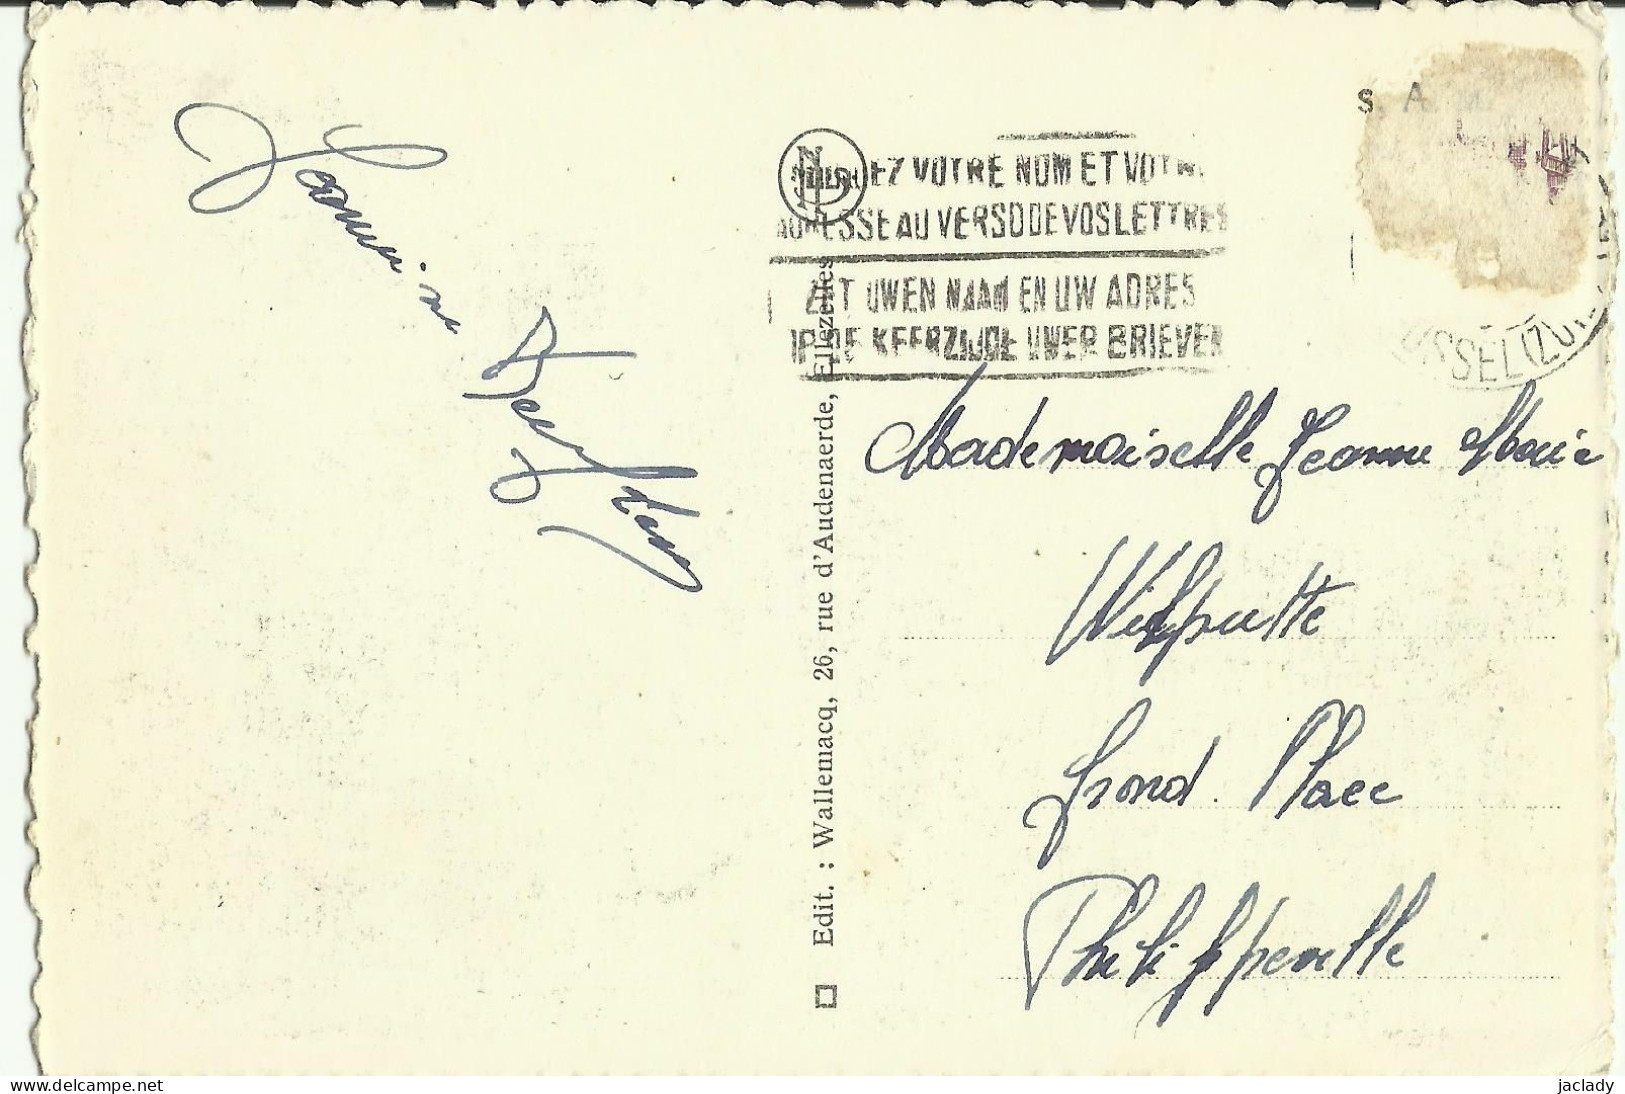 Jeannine
S. A.
VOTRE NOM ET VOTRE
ADRESSE AU VERSO DE VOS LETTRES
UWEN NAAM EN UW ADRES
KEERZIJDE UWER BRIEVEN
Edit. : Wallemacq, 26, rue d'Audenaerde, Ellezelles
Mademoiselle Jeanne Marie
Wilputte
Grand. Place
Philippeville
delcampe.net
jaclady